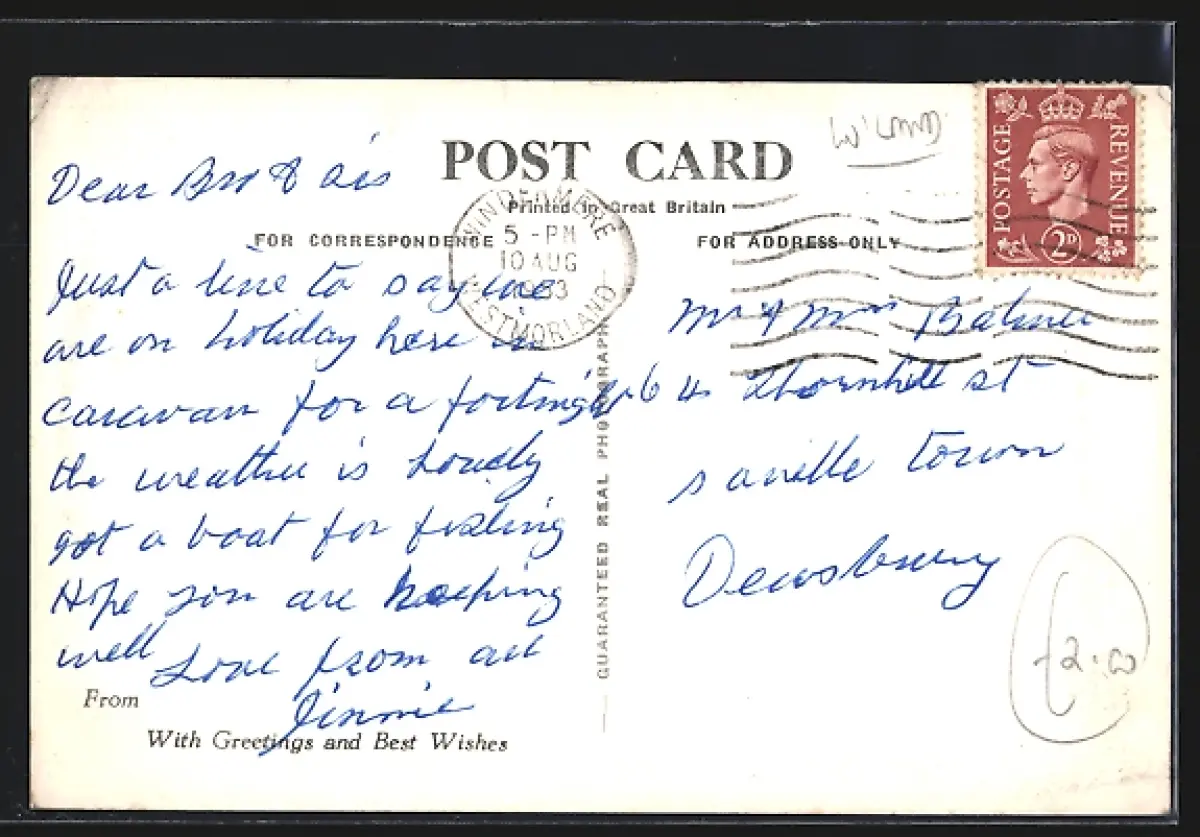 POST CARD
Printed in Great Britain
W'LAND
POSTAGE REVENUE
2D
WINDERMERE
5 - PM
10 AUG
WESTMORLAND
FOR CORRESPONDENCE
FOR ADDRESS ONLY
Dear Bro & sis
Just a line to say we
are on holiday here in
caravan for a fortnight
the weather is Lovely
got a boat for fishing
Hope you are keeping
well Love from all
Jinnie
From
With Greetings and Best Wishes
GUARANTEED REAL PHOTOGRAPH
Mr & Mrs
64 Thornhill st
saville town
Dewsbury
£2.00